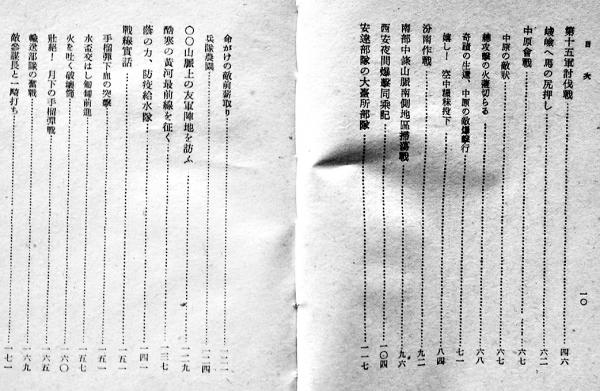 目次
第十五軍討伐戰 四六
峻嶮へ馬の尻押し 六二
中原會戰 六七
中原の敵狀 六七
總攻擊の火蓋切らる 六八
奇蹟の生還、中原の敵爆擊行 七一
嬉し！空中機秣投下 八四
汾南作戰 九二
南部中條山脈南側地區掃蕩戰 九六
西安夜間爆擊同乘記 一〇四
安達部隊の大臺所部隊 一一七
一〇
命がけの敵前薪取り 一二二
兵隊農園 一二四
〇〇山脈上の友軍陣地を訪ふ 一二九
酷寒の黃河最前線を征く 一三七
蔭の力、防疫給水隊 一四一
戰線實話 一五一
手榴彈下血の突擊 一五一
水盃交はし匍匐前進 一五七
火を吐く破壞筒 一六〇
壯絕！月下の手榴彈戰 一六五
輸送部隊の奮戰 一六九
敵參謀長と一騎打ち 一七一